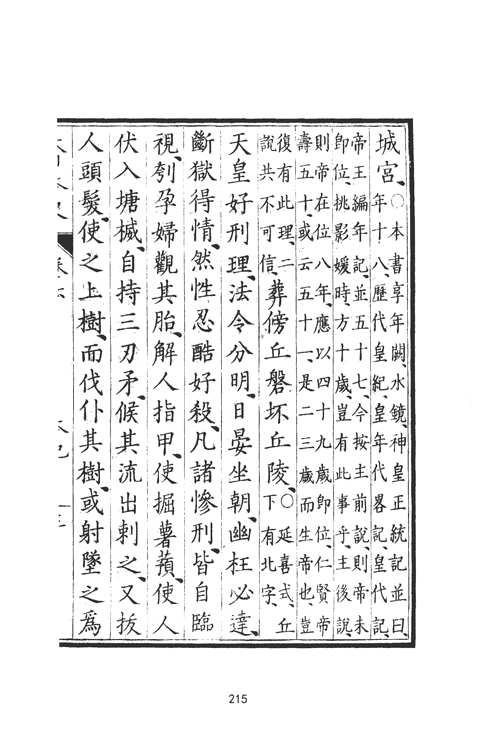 城宮、○本書享年闕、水鏡、神皇正統記並曰、
年十八、歷代皇紀、皇年代畧記、皇代記、
帝王編年記、並五十七、今按主前說、則帝未
即位、挑影媛時、方十歲、豈有此事乎、主後說、
則帝在位八年、應以四十九歲即位、仁賢帝
壽五十、或云五十一、是二三歲而生帝也、豈
復有此理、二
說共不可信、葬傍丘磐坏丘陵、○延喜式、丘
下有北字、
天皇好刑理、法令分明、日晏坐朝、幽枉必達、
斷獄得情、然性忍酷好殺、凡諸慘刑、皆自臨
視、刳孕婦觀其胎、解人指甲、使掘薯蕷、使人
伏入塘楲、自持三刃矛、候其流出刺之、又拔
人頭髮、使之上樹、而伐仆其樹、或射墜之爲
215